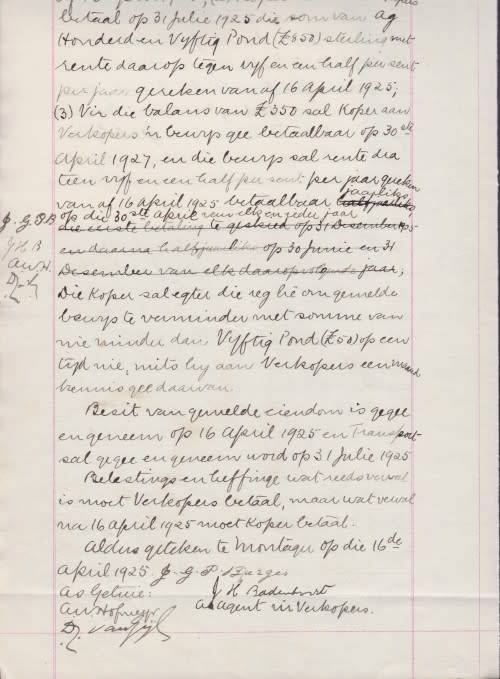 betaal op 31 Julie 1925 die som van Ag
Honderd en Vyftig Pond (£850) sterling met
rente daarop tegen vyf en een half per sent
per jaar gereken vanaf 16 April 1925;
(3) Vir die balans van £350 sal Koper aan
Verkopers 'n bewys gee betaalbaar op 30ste
April 1927, en die bewys sal rente dra
teen vyf en een half per sent per jaar gereken
vanaf 16 April 1925 betaalbaar jaarliks halfjaarliks
J. G. P. B op die 30ste April van elk en ieder jaar
die eerste betaling te geskied op 31 Desember 1925
J H B en daarna halfjaarliks op 30 Junie en 31
A.W.H. Desember van elk daaropvolgende jaar;
Die Koper sal egter die reg hê om gemelde
bewys te verminder met somme van
nie minder dan Vyftig Pond (£50) op een
tyd nie, mits hy aan Verkopers een maand
kennis gee daarvan.
Besit van gemelde eiendom is gegee
en geneem op 16 April 1925 en Transport
sal gegee en geneem word op 31 Julie 1925
Belastings en heffinge wat reeds verval
is moet Verkopers betaal, maar wat verval
na 16 April 1925 moet Koper betaal.
Aldus geteken te Montagu op die 16de
April 1925. J. G. P. Burger
As Getuie: J H Badenhorst
A.W. Hofmeyr As Agent vir Verkopers.
D. J. van Zijl